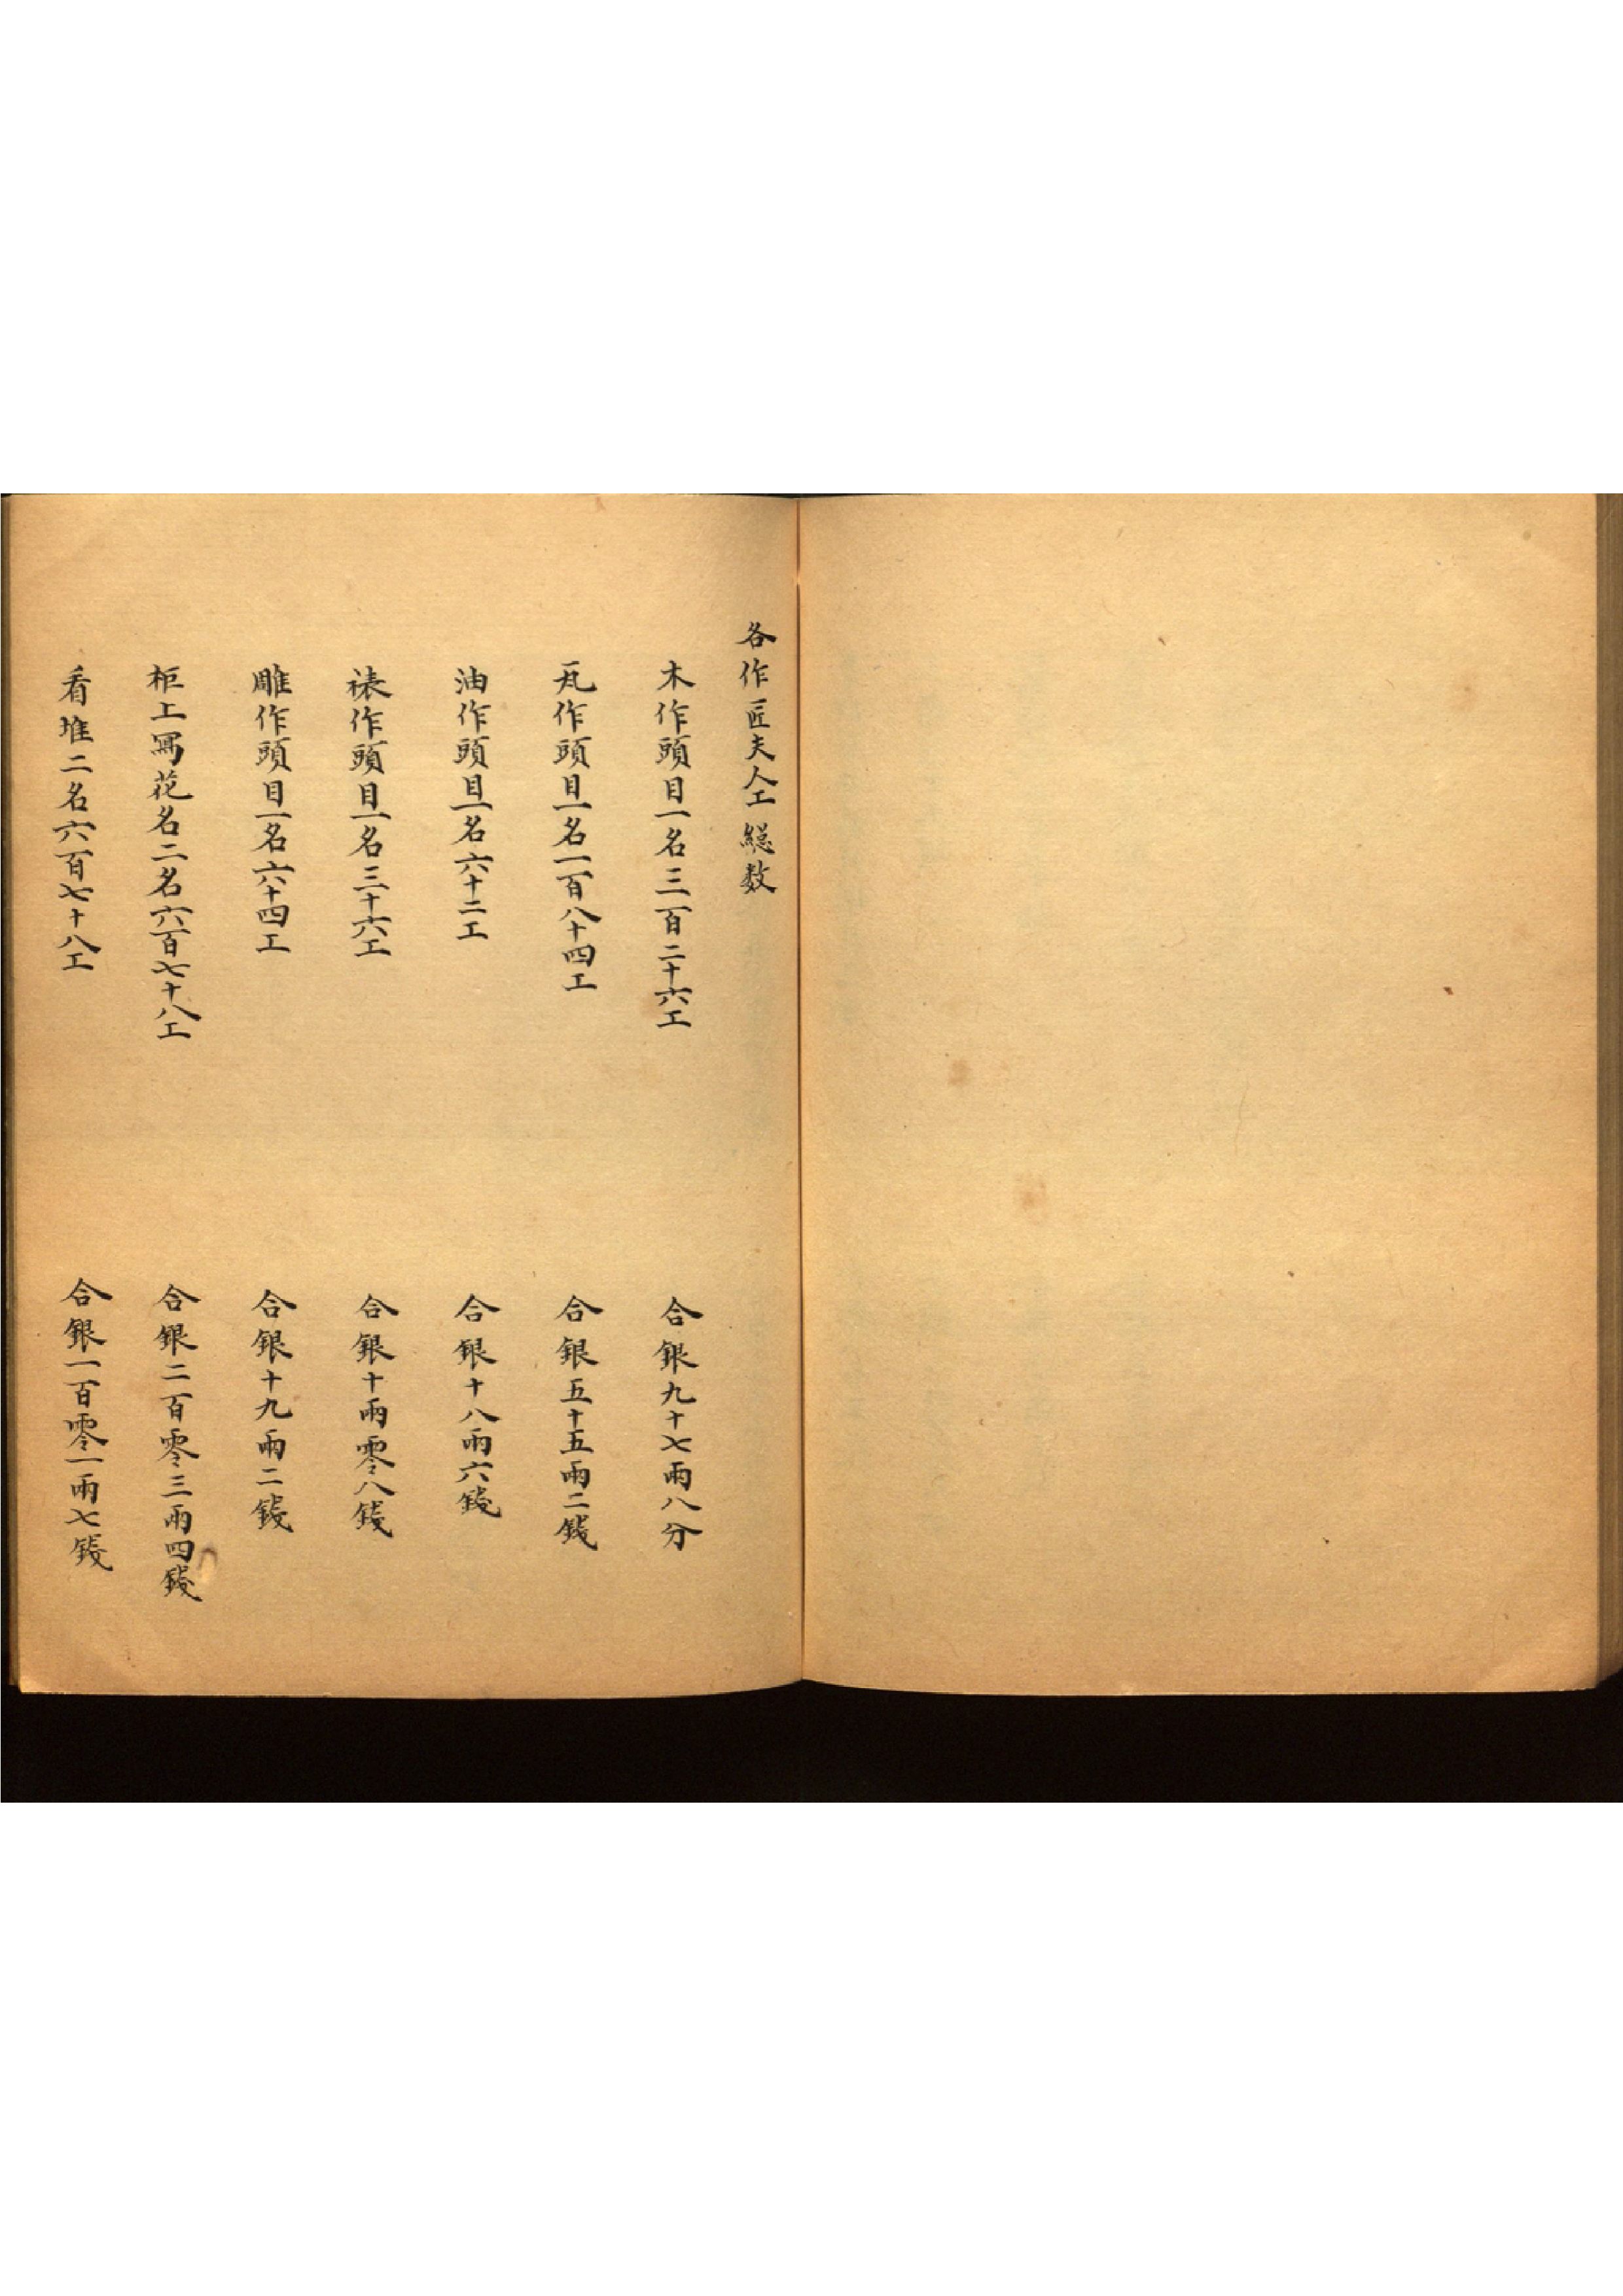 各作匠夫人工総数
木作頭目一名三百二十六工
合銀九十七兩八分
瓦作頭目一名一百八十四工
合銀五十五兩二錢
油作頭目一名六十二工
合銀十八兩六錢
裱作頭目一名三十六工
合銀十兩零八錢
雕作頭目一名六十四工
合銀十九兩二錢
柜上寫花名二名六百七十八工
合銀二百零三兩四錢
看堆二名六百七十八工
合銀一百零一兩七錢